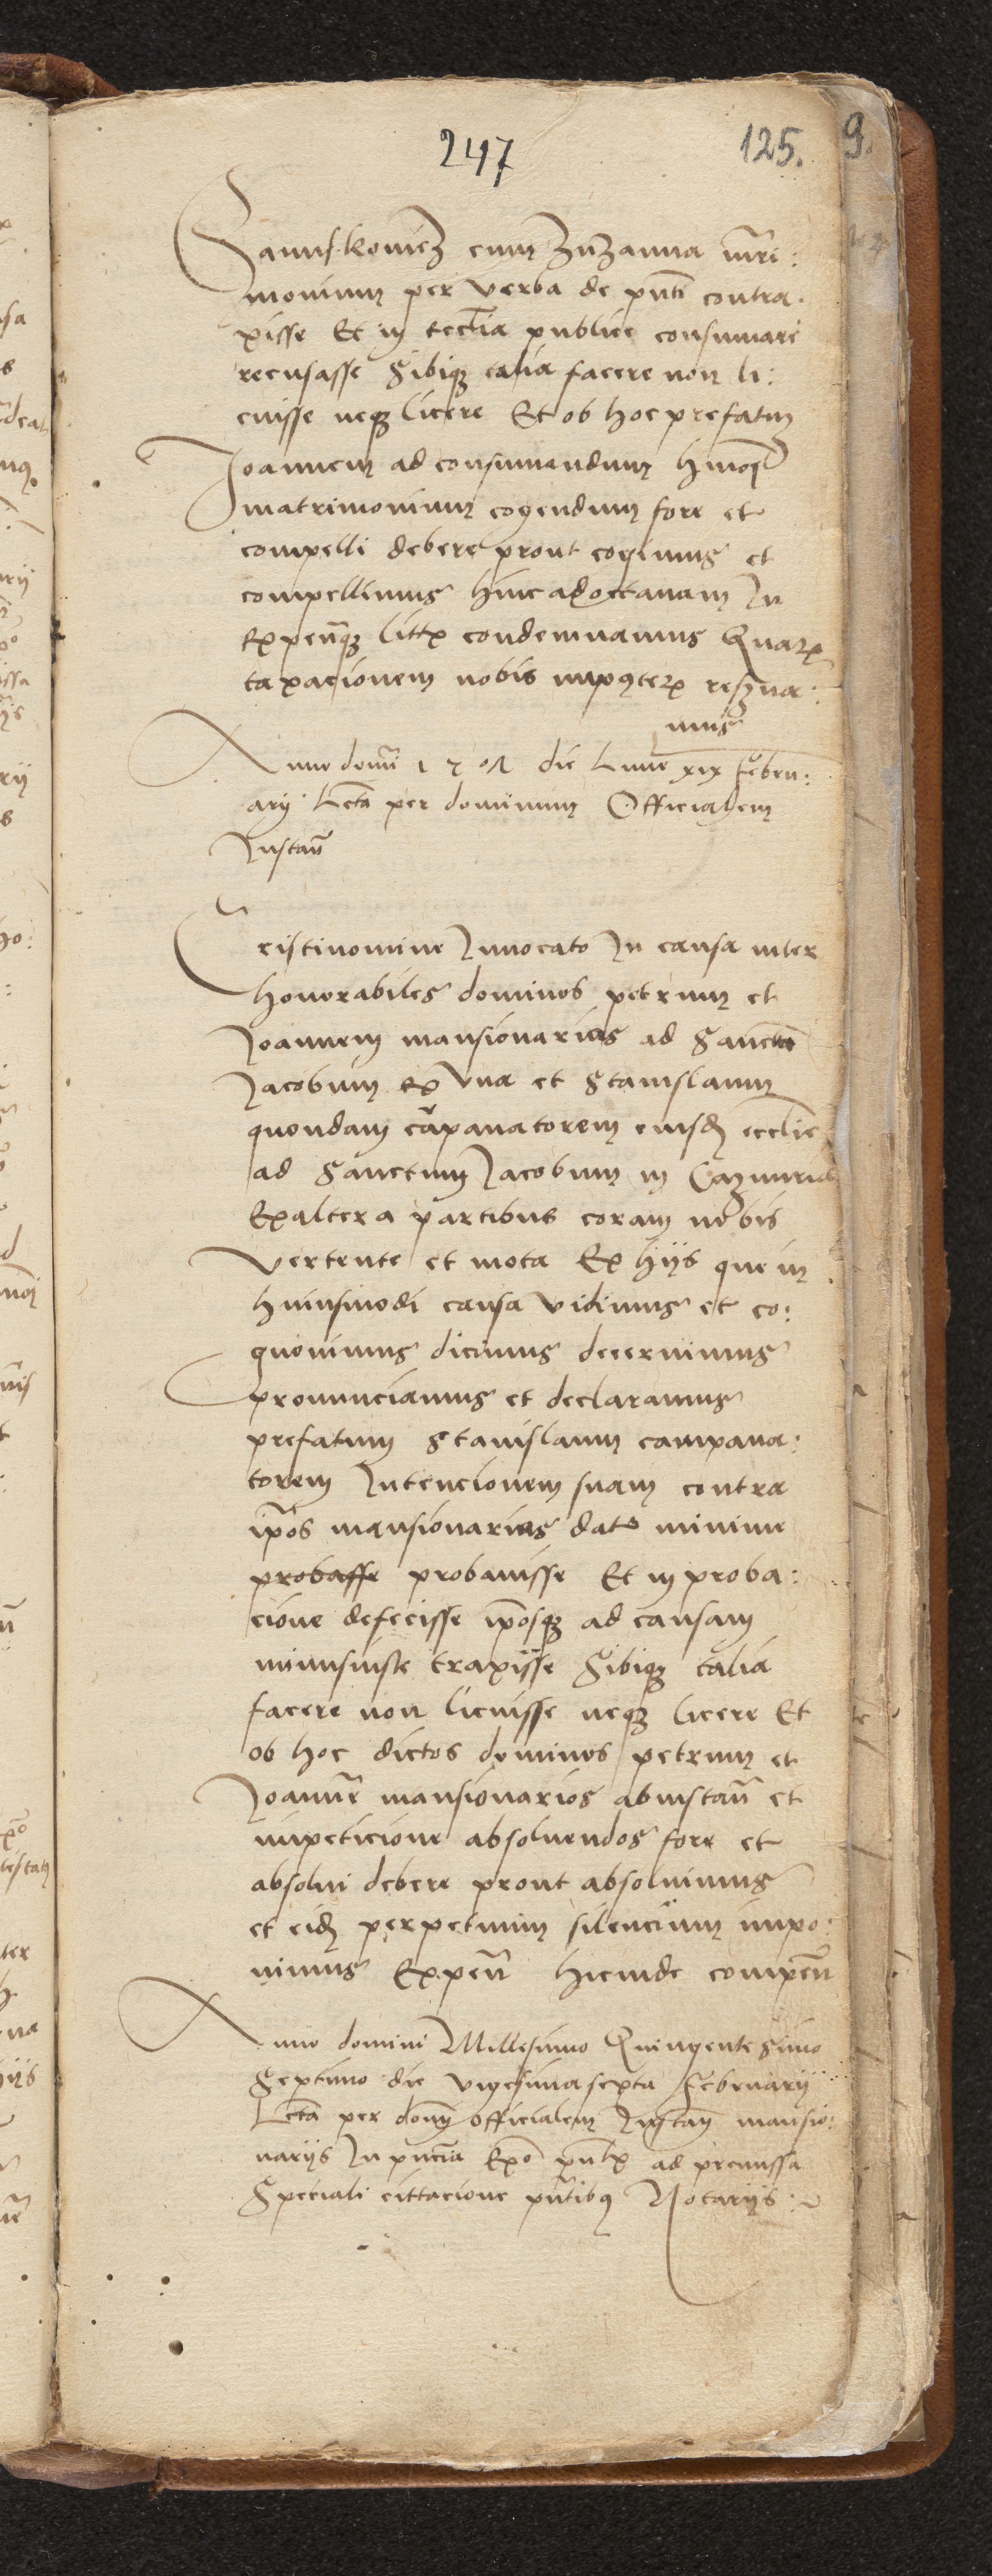 247
125. 9.
Januskowicz cum Zuzanna mr̄i:
monium per verba de pn̄ti contra-
xisse Et in eccl̄ia publice consumare
recusasse Sibiqз talia facere non li:
cuisse neqз licere Et ob hoc prefatum
Joannem ad consumandum hmoi
matrimonium cogendum fore et
compelli debere prout cogimus et
compellimus hinc ad octavam In
Expen̄qз litis condemnamus Quarum
taxacionem nobis imposterum reserva:
mus
Anno domī 1507 die Lune xix Febru:
arij Lc̄ta per dominum Officialem
Instan̄
Cristi nomine Invocato In causa inter
honorabiles dominos petrum et
Joannem mansionarios ad Sanctum
Jacobum ex Una et Stanislaum
quondam cāpanatorem eiusdem eccl̄ie
ad Sanctum Jacobum in Cazimiria
Ex altera partibus coram nobis
vertente et mota Ex hijs que in
huiusmodi causa vidimus et co:
gnovimus dicimus decernimus
pronunciamus et declaramus
prefatum Stanislaum campana:
torem Intencionem suam contra
ip̄os mansionarios dato minime
probasse probavisse Et in proba:
cione defecisse ip̄osqз ad causam
minus iuste traxisse Sibiqз talia
facere non licuisse neqз licere Et
ob hoc dictos dominos petrum et
Joannē mansionarios ab instan̄ et
impeticione absolvendos fore et
absolvi debere prout absolvimus
et eidem perpetuum silencium impo:
nimus Expen̄ hicinde compen̄
Anno domini Millesimo Quingentesimo
Septimo die vigesima sexta Februarij
Lc̄ta per domn̄ officialem Instan̄ mansio:
narijs In pn̄cia Exo pn̄tis ad premissa
Speciali cittacione pn̄tibus Notarijs